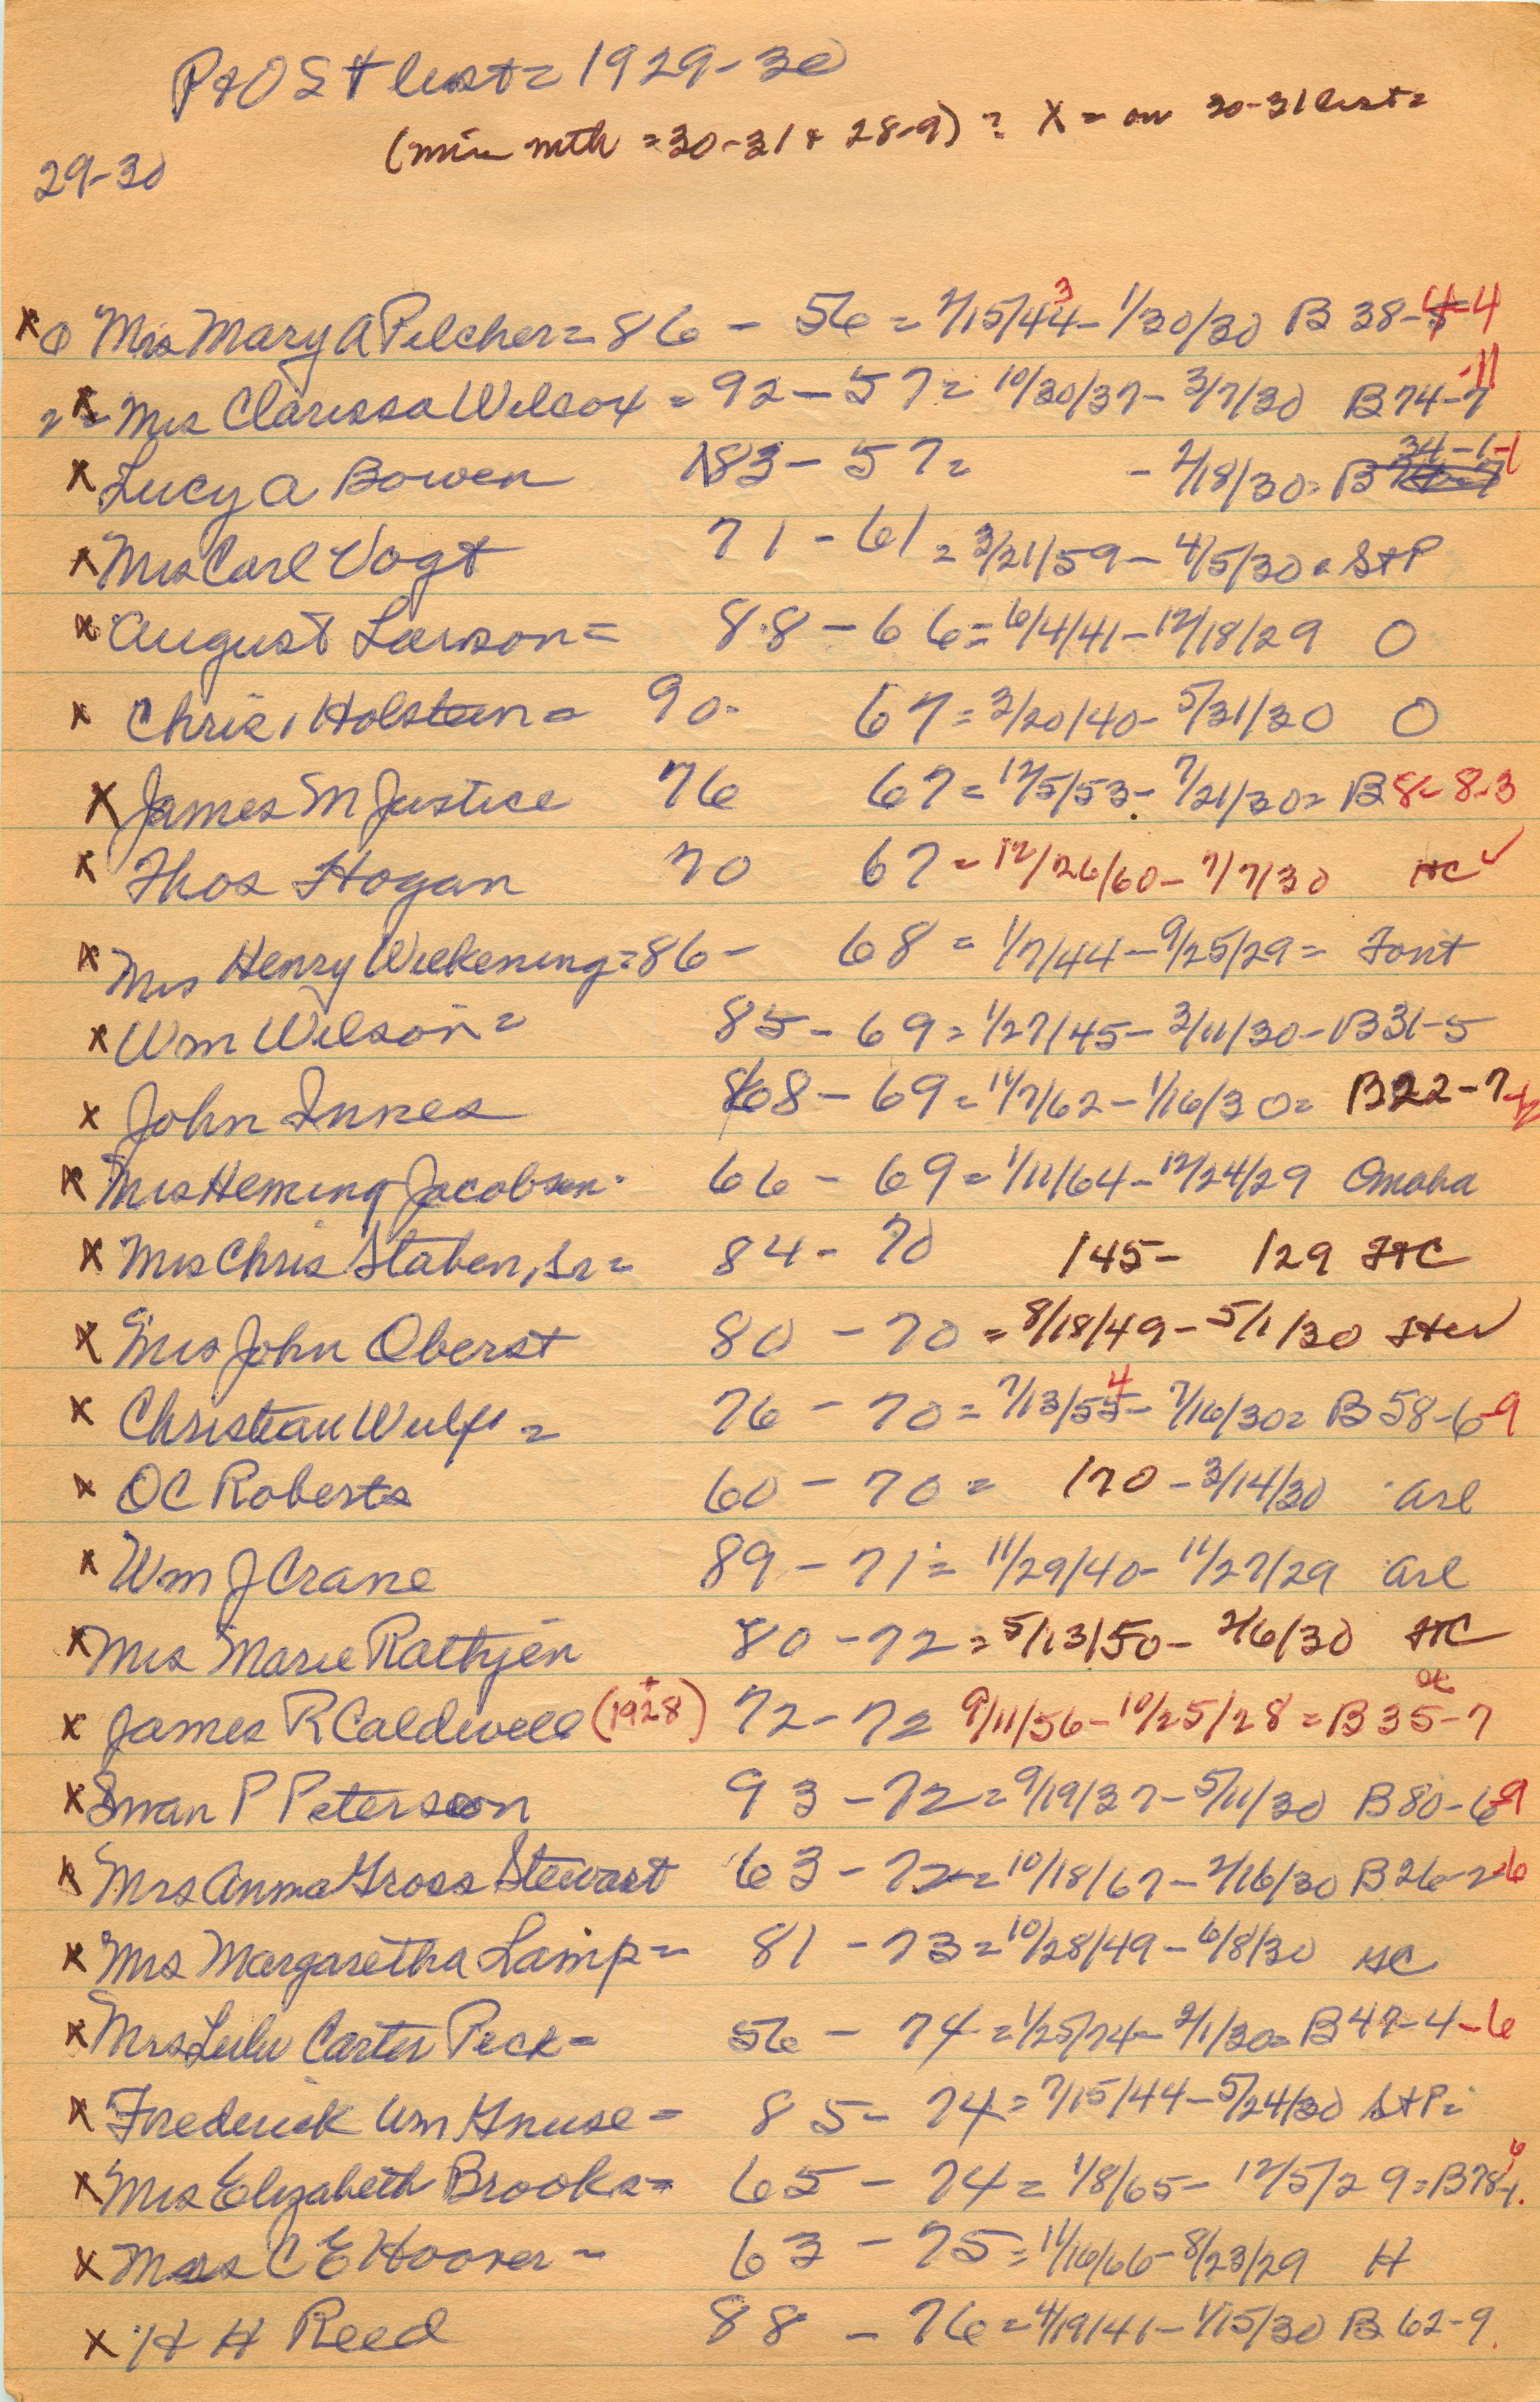 P & O S + list = 1929-30
(min mth = 30-31 & 28-9)? X = on 30-31 list =
29-30
x o Mrs Mary A Pilcher = 86 - 56 = 2/15/44 3 - 1/30/30 B 38-4-4
x Mrs Clarissa Wilcox = 92 - 57 = 10/30/37 - 3/7/30 B 74-7-11
x Lucy A Bowen 83 - 57 = - 2/18/30 = B 34-1-1
x Mrs Carl Vogt 71 - 61 = 3/21/59 - 4/5/30 = StP
x August Larson = 88 - 66 = 6/4/41 - 12/18/29 O
x Chris Holstein = 90 - 67 = 3/20/40 - 5/31/30 O
x James M Justice 76 67 = 12/5/53 - 7/21/30 = B 8-8-3
x Thos Hogan 70 67 = 12/26/60 - 7/7/30 HC ✓
x Mrs Henry Wilkening = 86 - 68 = 1/7/44 - 9/25/29 = Font
x Wm Wilson = 85 - 69 = 1/27/45 - 3/11/30 - B 31-5
x John Innes 68 - 69 = 11/7/62 - 1/16/30 = B 22-7
x Mrs Heming Jacobsen 66 - 69 = 1/11/64 - 12/24/29 Omaha
x Mrs Chris Staben, Sr = 84 - 70 145 - 129 HC
x Mrs John Oberst 80 - 70 = 8/18/49 - 5/1/30
x Christian Wulf = 76 - 70 = 7/13/55 4 - 7/16/30 = B 58-6-9
x OC Roberts 60 - 70 = 170 - 3/14/30 Arl
x Wm J Crane 89 - 71 = 11/29/40 - 11/27/29 Arl
x Mrs Marie Rathjen 80 - 72 = 5/13/50 - 2/6/30 HC
x James R Caldwell (1928) + 72 - 72 9/11/56 - 10/25/28 = B 35-7 ok
x Swan P Peterson 93 - 72 = 9/19/37 - 5/11/30 B 80-6-9
x Mrs Anna Gross Stewart 63 - 72 = 10/18/67 - 2/16/30 B 26-2-6
x Mrs Margaretha Lamp = 81 - 73 = 10/28/49 - 6/8/30 HC
x Mrs Lulu Carter Peck = 56 - 74 = 1/25/74 - 2/1/30 = B 47-4-6
x Frederick Wm Gnuse = 85 - 74 = 7/15/44 - 5/24/30 StP =
x Mrs Elizabeth Brooks = 65 - 74 = 1/8/65 - 12/5/29 = B 78-1 6
x Mrs C E Hoover - 63 - 75 = 11/16/66 - 8/23/29 H
x H H Reed 88 - 76 = 4/19/41 - 1/15/30 B 62-9